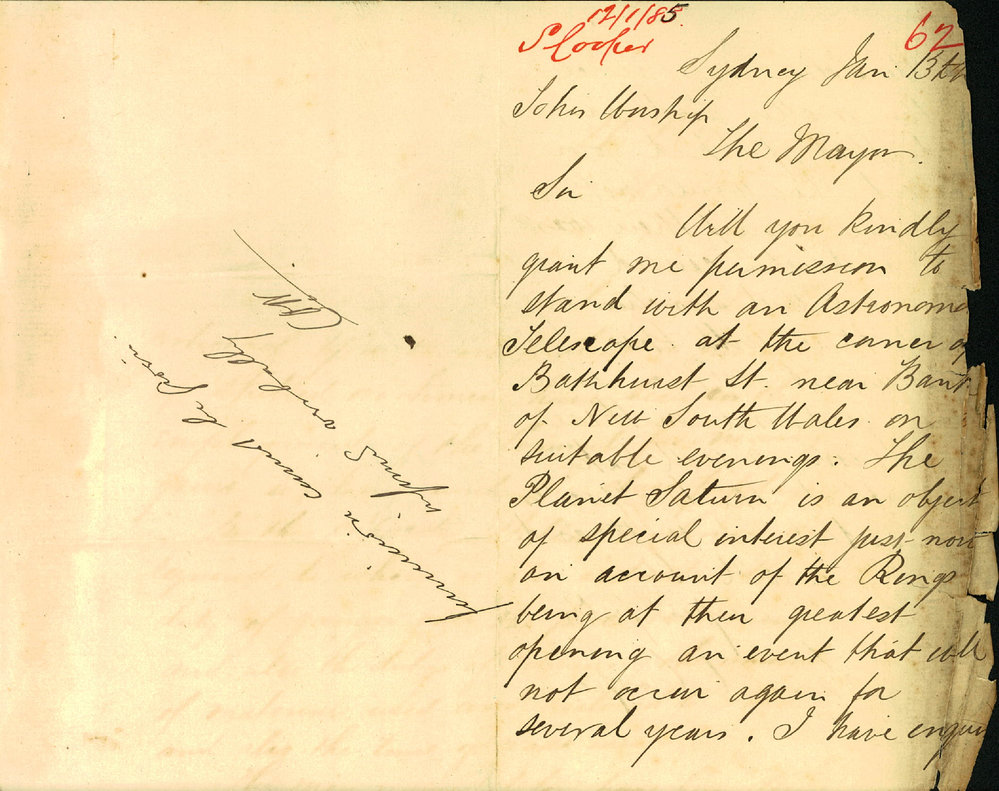 12/1/85
S Cooper
62
Sydney Jan 13th
To his Worship
The Mayor.
Sir
Will you kindly
grant me permission to
stand with an Astronom
Telescope at the corner of
Bathhurst St. near Bank
of New South Wales on
suitable evenings. The
Planet Saturn is an object
of special interest just now
on account of the Rings
being at their greatest
opening an event that will
not occur again for
several years. I have enquir
permission cannot be given